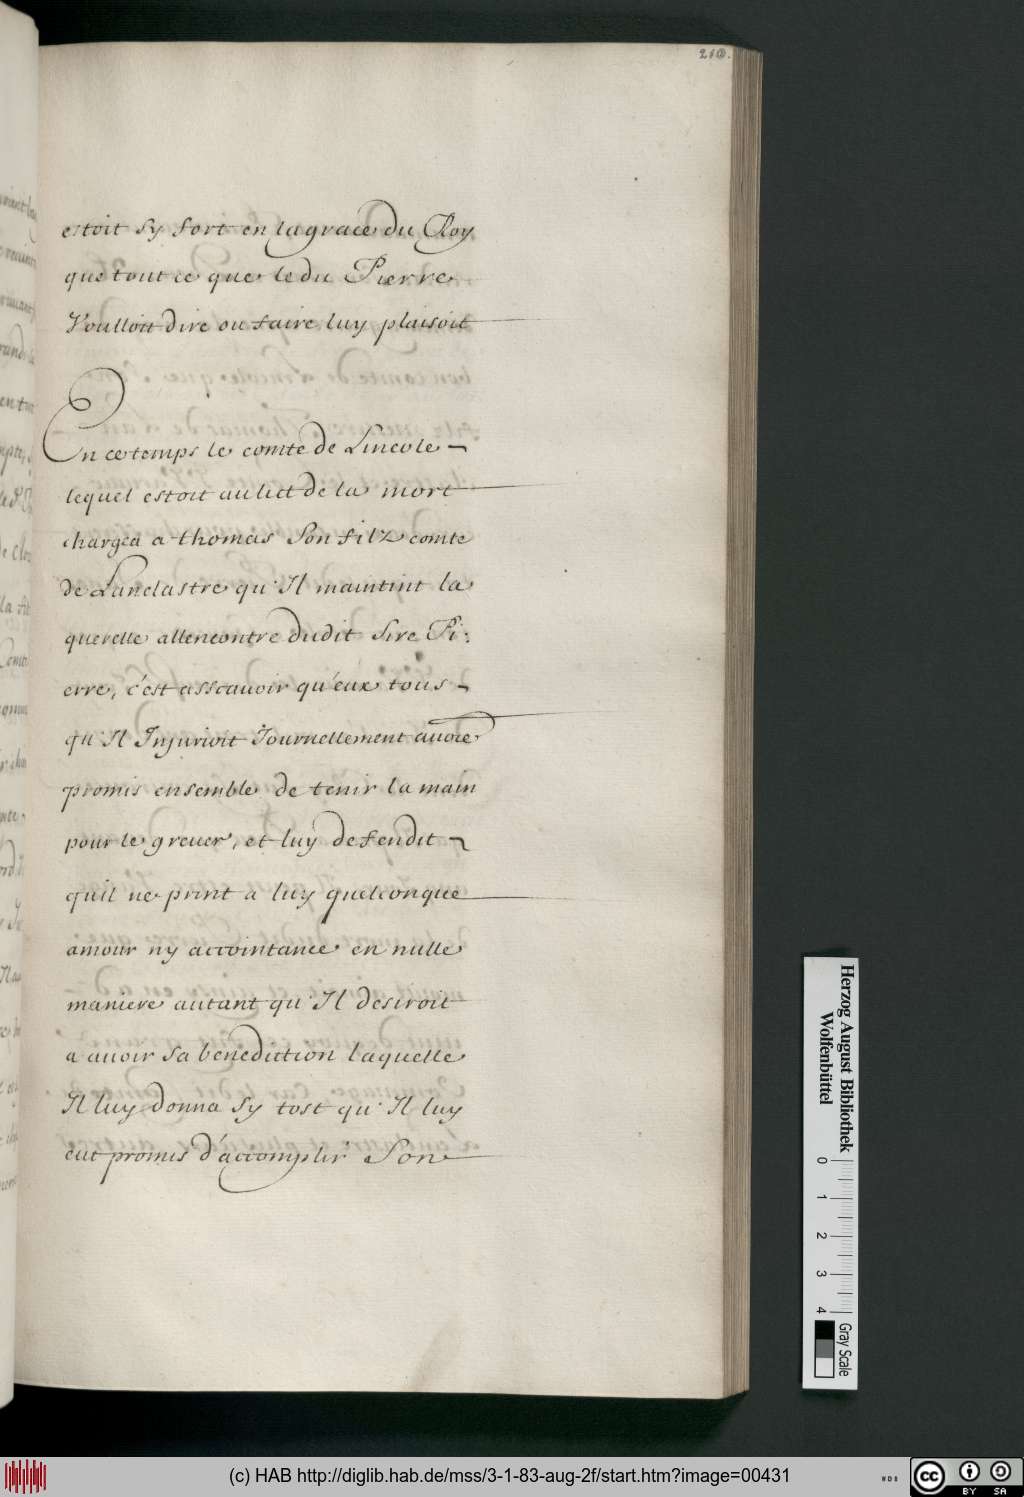 210.
estoit sy fort en la grace du Roy
que tout ce que le du Pierre
Voulloit dire ou faire luy plaisoit
En ce temps le comte de Lincole
lequel estoit au lict de la mort
chargea a thomas Son filz comte
de Lanclastre qu'Il maintint la
querelle allencontre dudit Sire Pi:
erre, c'est asscauoir qu'eux tous
qu'Il Injurioit Journellement auoie
promis ensemble de tenir la main
pour le greuer, et luy defendit
qu'il ne print a luy quelconque
amour ny accointance en nulle
maniere autant qu'Il desiroit
a auoir sa benediction laquelle
Il luy donna sy tost qu'Il luy
eut promis d'accomplir Son
Herzog August Bibliothek
Wolfenbüttel
0 1 2 3 4
Gray Scale
(c) HAB http://diglib.hab.de/mss/3-1-83-aug-2f/start.htm?image=00431
WDB
cc BY SA